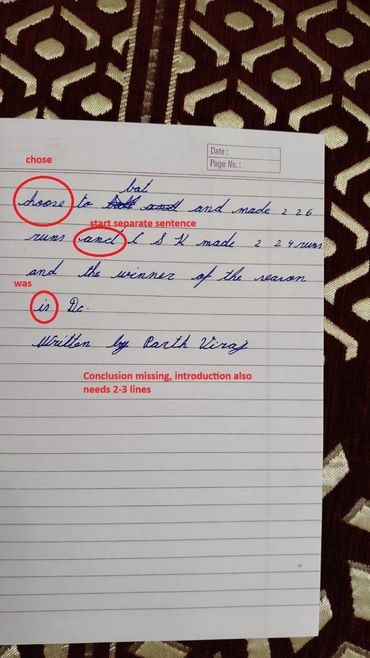 chose
Date :
Page No. :
bat
choose to and made 226
start separate sentence
runs and C S K made 224 runs
and the winner of the season
was
is Dc.
Written by Parth Viraj
Conclusion missing, introduction also
needs 2-3 lines